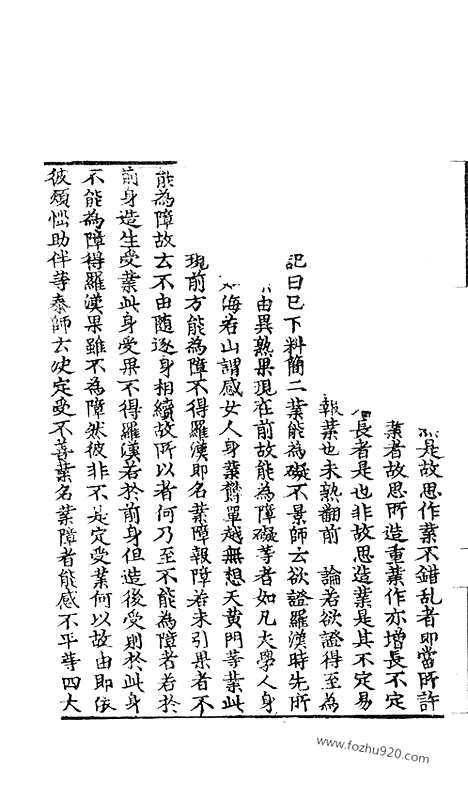 是故思作業不錯乱者即當所許
業者故思所造重業作亦增長不定
長者是也非故思造業是其不定易
報業也未熟翻前 論若欲證得至為
記曰巳下料簡二業能為礙不景師云欲證羅漢時先所
由異熟果現在前故能為障礙等者如凡夫學人身
海若山謂感女人身業欝單越無想天黃門等業此
現前方能為障不得羅漢即名業障報障若未引果者不
能為障故云不由隨逐身相續故所以者何乃至不能為障者若於
前身造生受業此身受果不得羅漢若於前身但造後受則於此身
不能為障得羅漢果雖不為障然彼非不是定受業何以故由即依
彼煩惱助伴等泰師云決定受不善業名業障者能感不平等四大
www.fozhu920.com